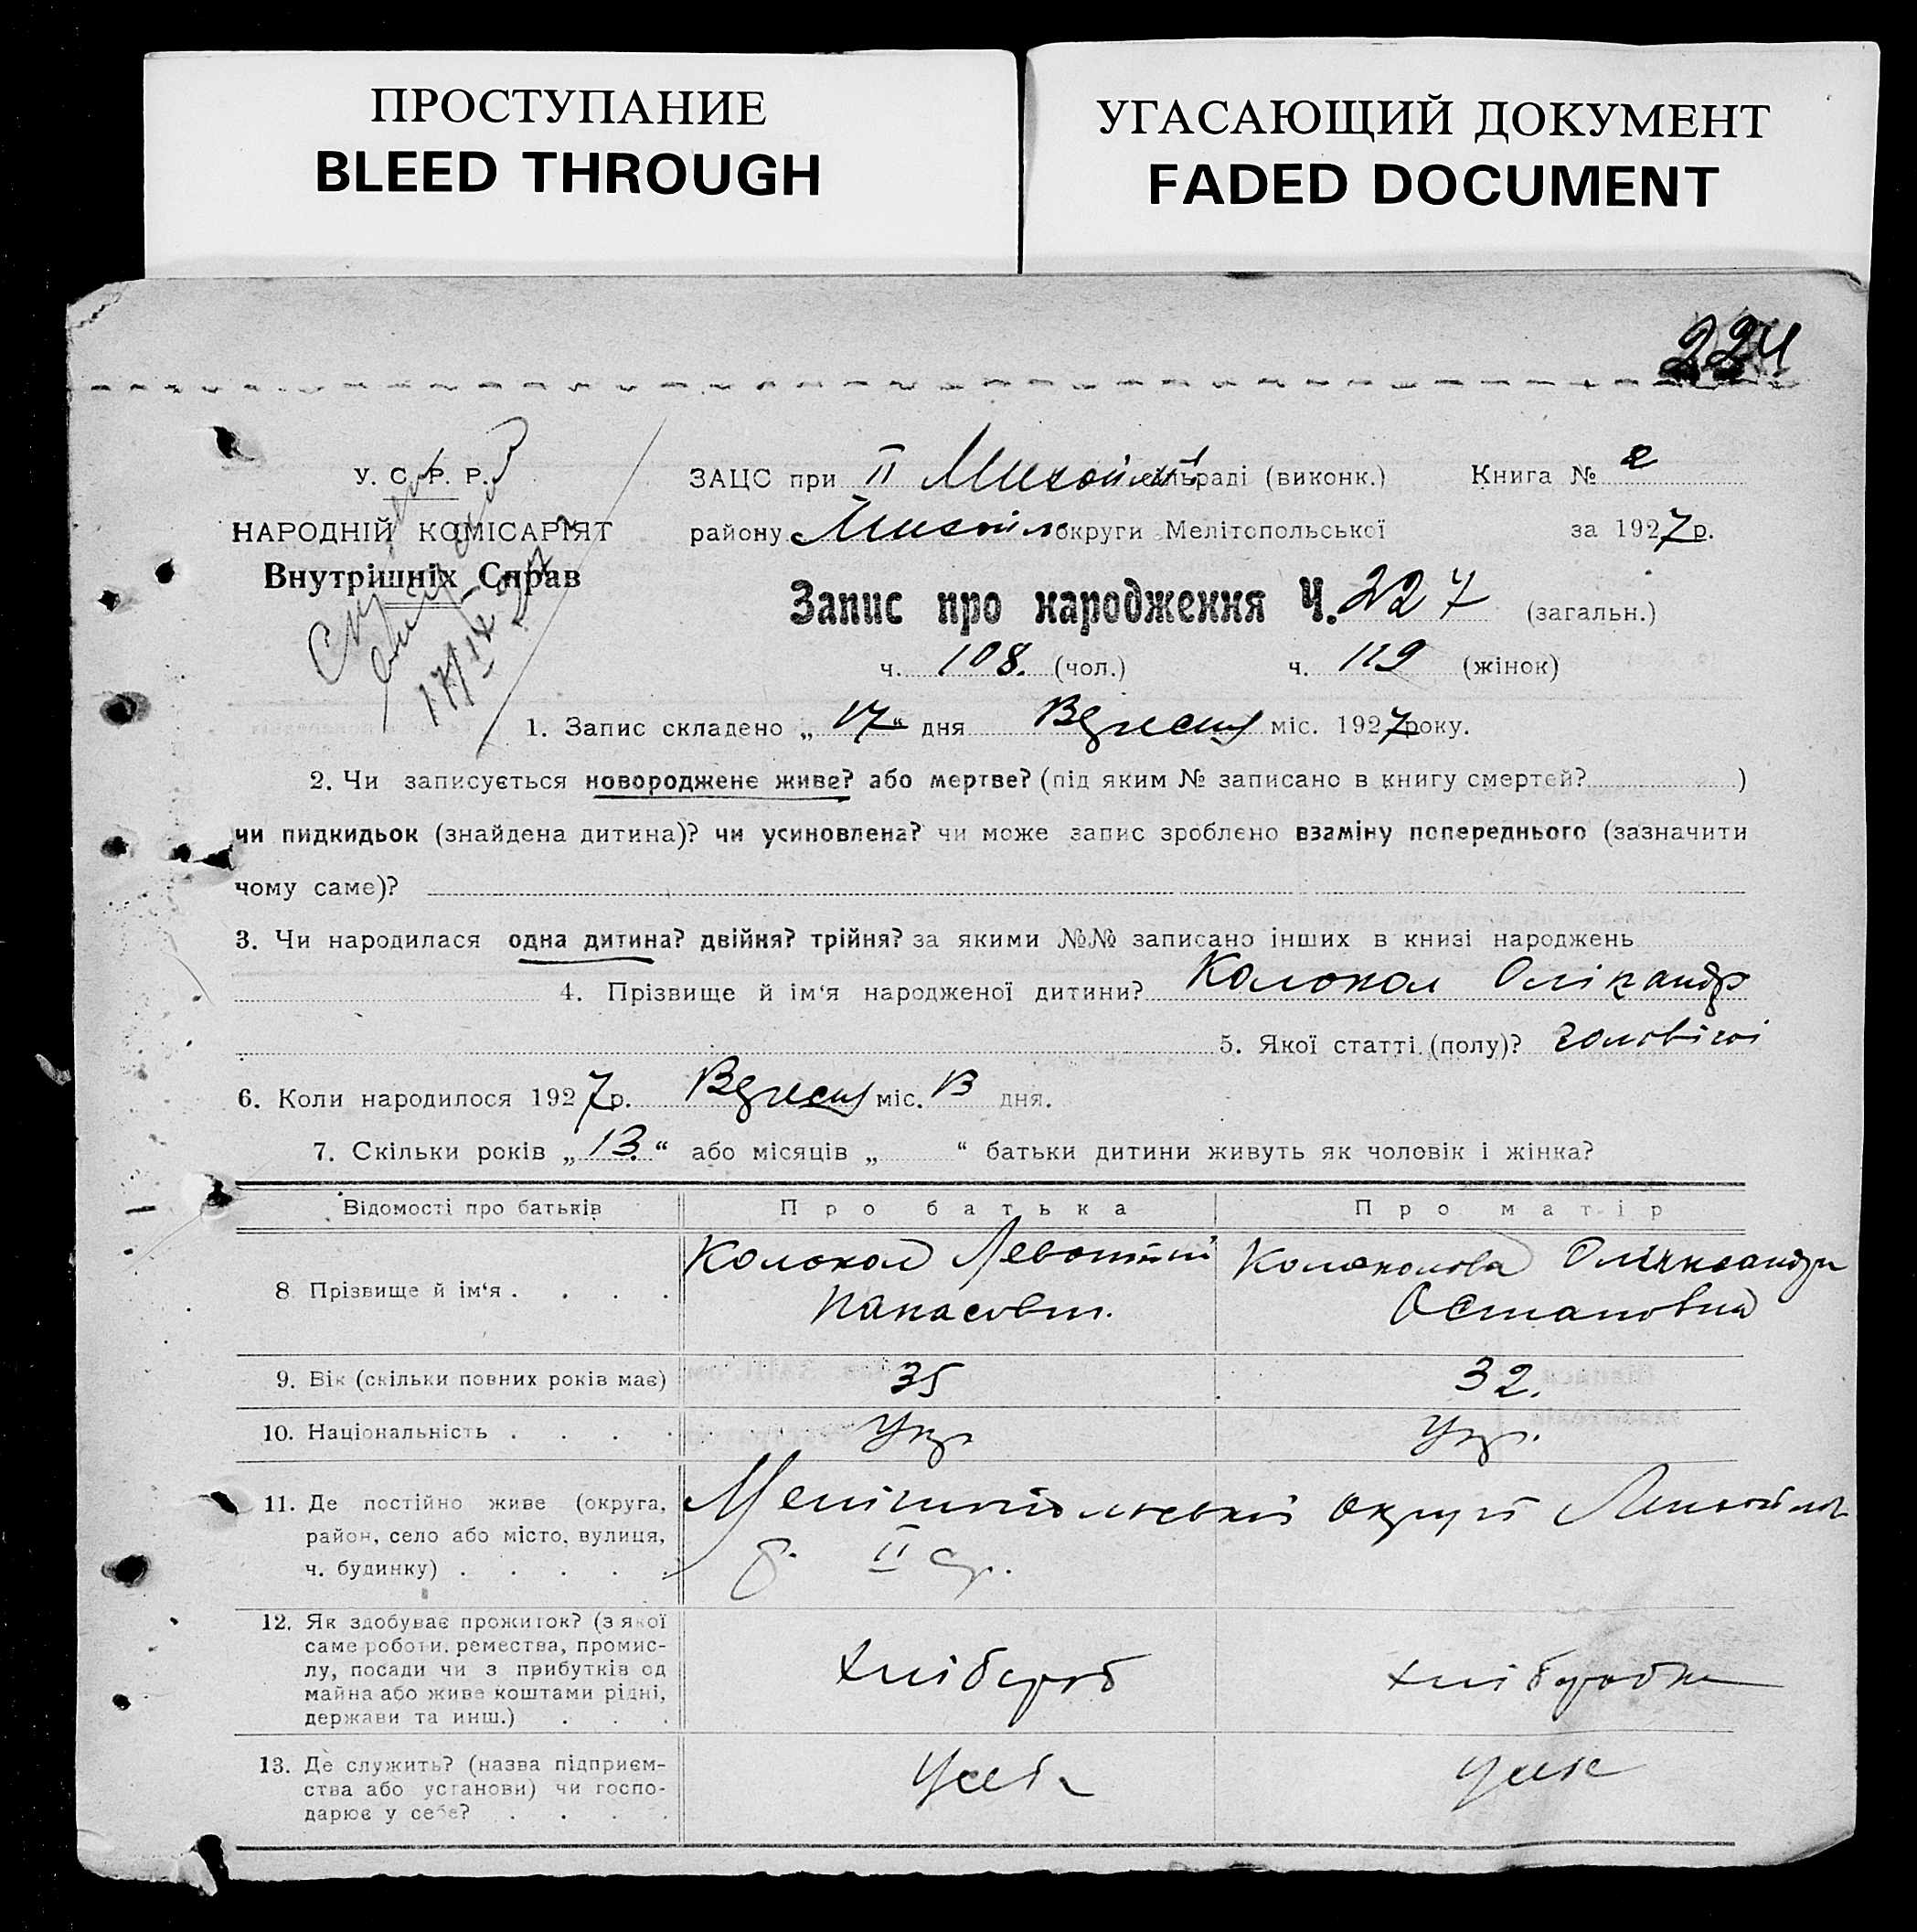 ПРОСТУПАНИЕ
BLEED THROUGH
УГАСАЮЩИЙ ДОКУМЕНТ
FADED DOCUMENT
224
У. С. Р. Р.
НАРОДНІЙ КОМІСАРІЯТ
Внутрішніх Справ
ЗАЦС при II Михайл сільраді (виконк.) Книга № 2
району Михайл округи Мелітопольської за 1927 р.
Запис про народження Ч. 227 (загальн.)
ч. 108. (чол.) ч. 119 (жінок)
1. Запис складено „ 17 “ дня Вересня міс. 1927 року.
2. Чи записується новороджене живе? або мертве? (під яким № записано в книгу смертей? )
чи пидкидьок (знайдена дитина)? чи усиновлена? чи може запис зроблено взаміну попереднього (зазначити
чому саме)?
3. Чи народилася одна дитина? двійня? трійня? за якими №№ записано інших в книзі народжень
4. Прізвище й ім‘я народженої дитини? Колокол Олікандр
5. Якої статті (полу)?
6. Коли народилося 1927 р. Вересня міс. 13 дня.
7. Скільки років „ 13. “ або місяців „ “ батьки дитини живуть як чоловік і жінка?
Відомості про батьків Про батька Про матір
8 Прізвище й ім‘я . . . . Колокол Левонтій Колоколова Олександра
Панасович. Остаповна
9. Вік (скільки повних років має) 35 32.
10. Національність . . . . Укр. Укр.
11. Де постійно живе (округа, район, село або місто, вулиця, ч. будинку) . . . . . Мелітопольської округи Михайлов
р. II ср.
12. Як здобуває прожиток? (з якої
саме роботи, ремества, промис-
лу, посади чи з прибутків од
майна або живе коштами рідні,
держави та инш.) . . . хлібороб хліборобка
13. Де служить? (назва підприєм-
ства або установи) чи госпо-
дарює у себе? . . . . У себе У себе